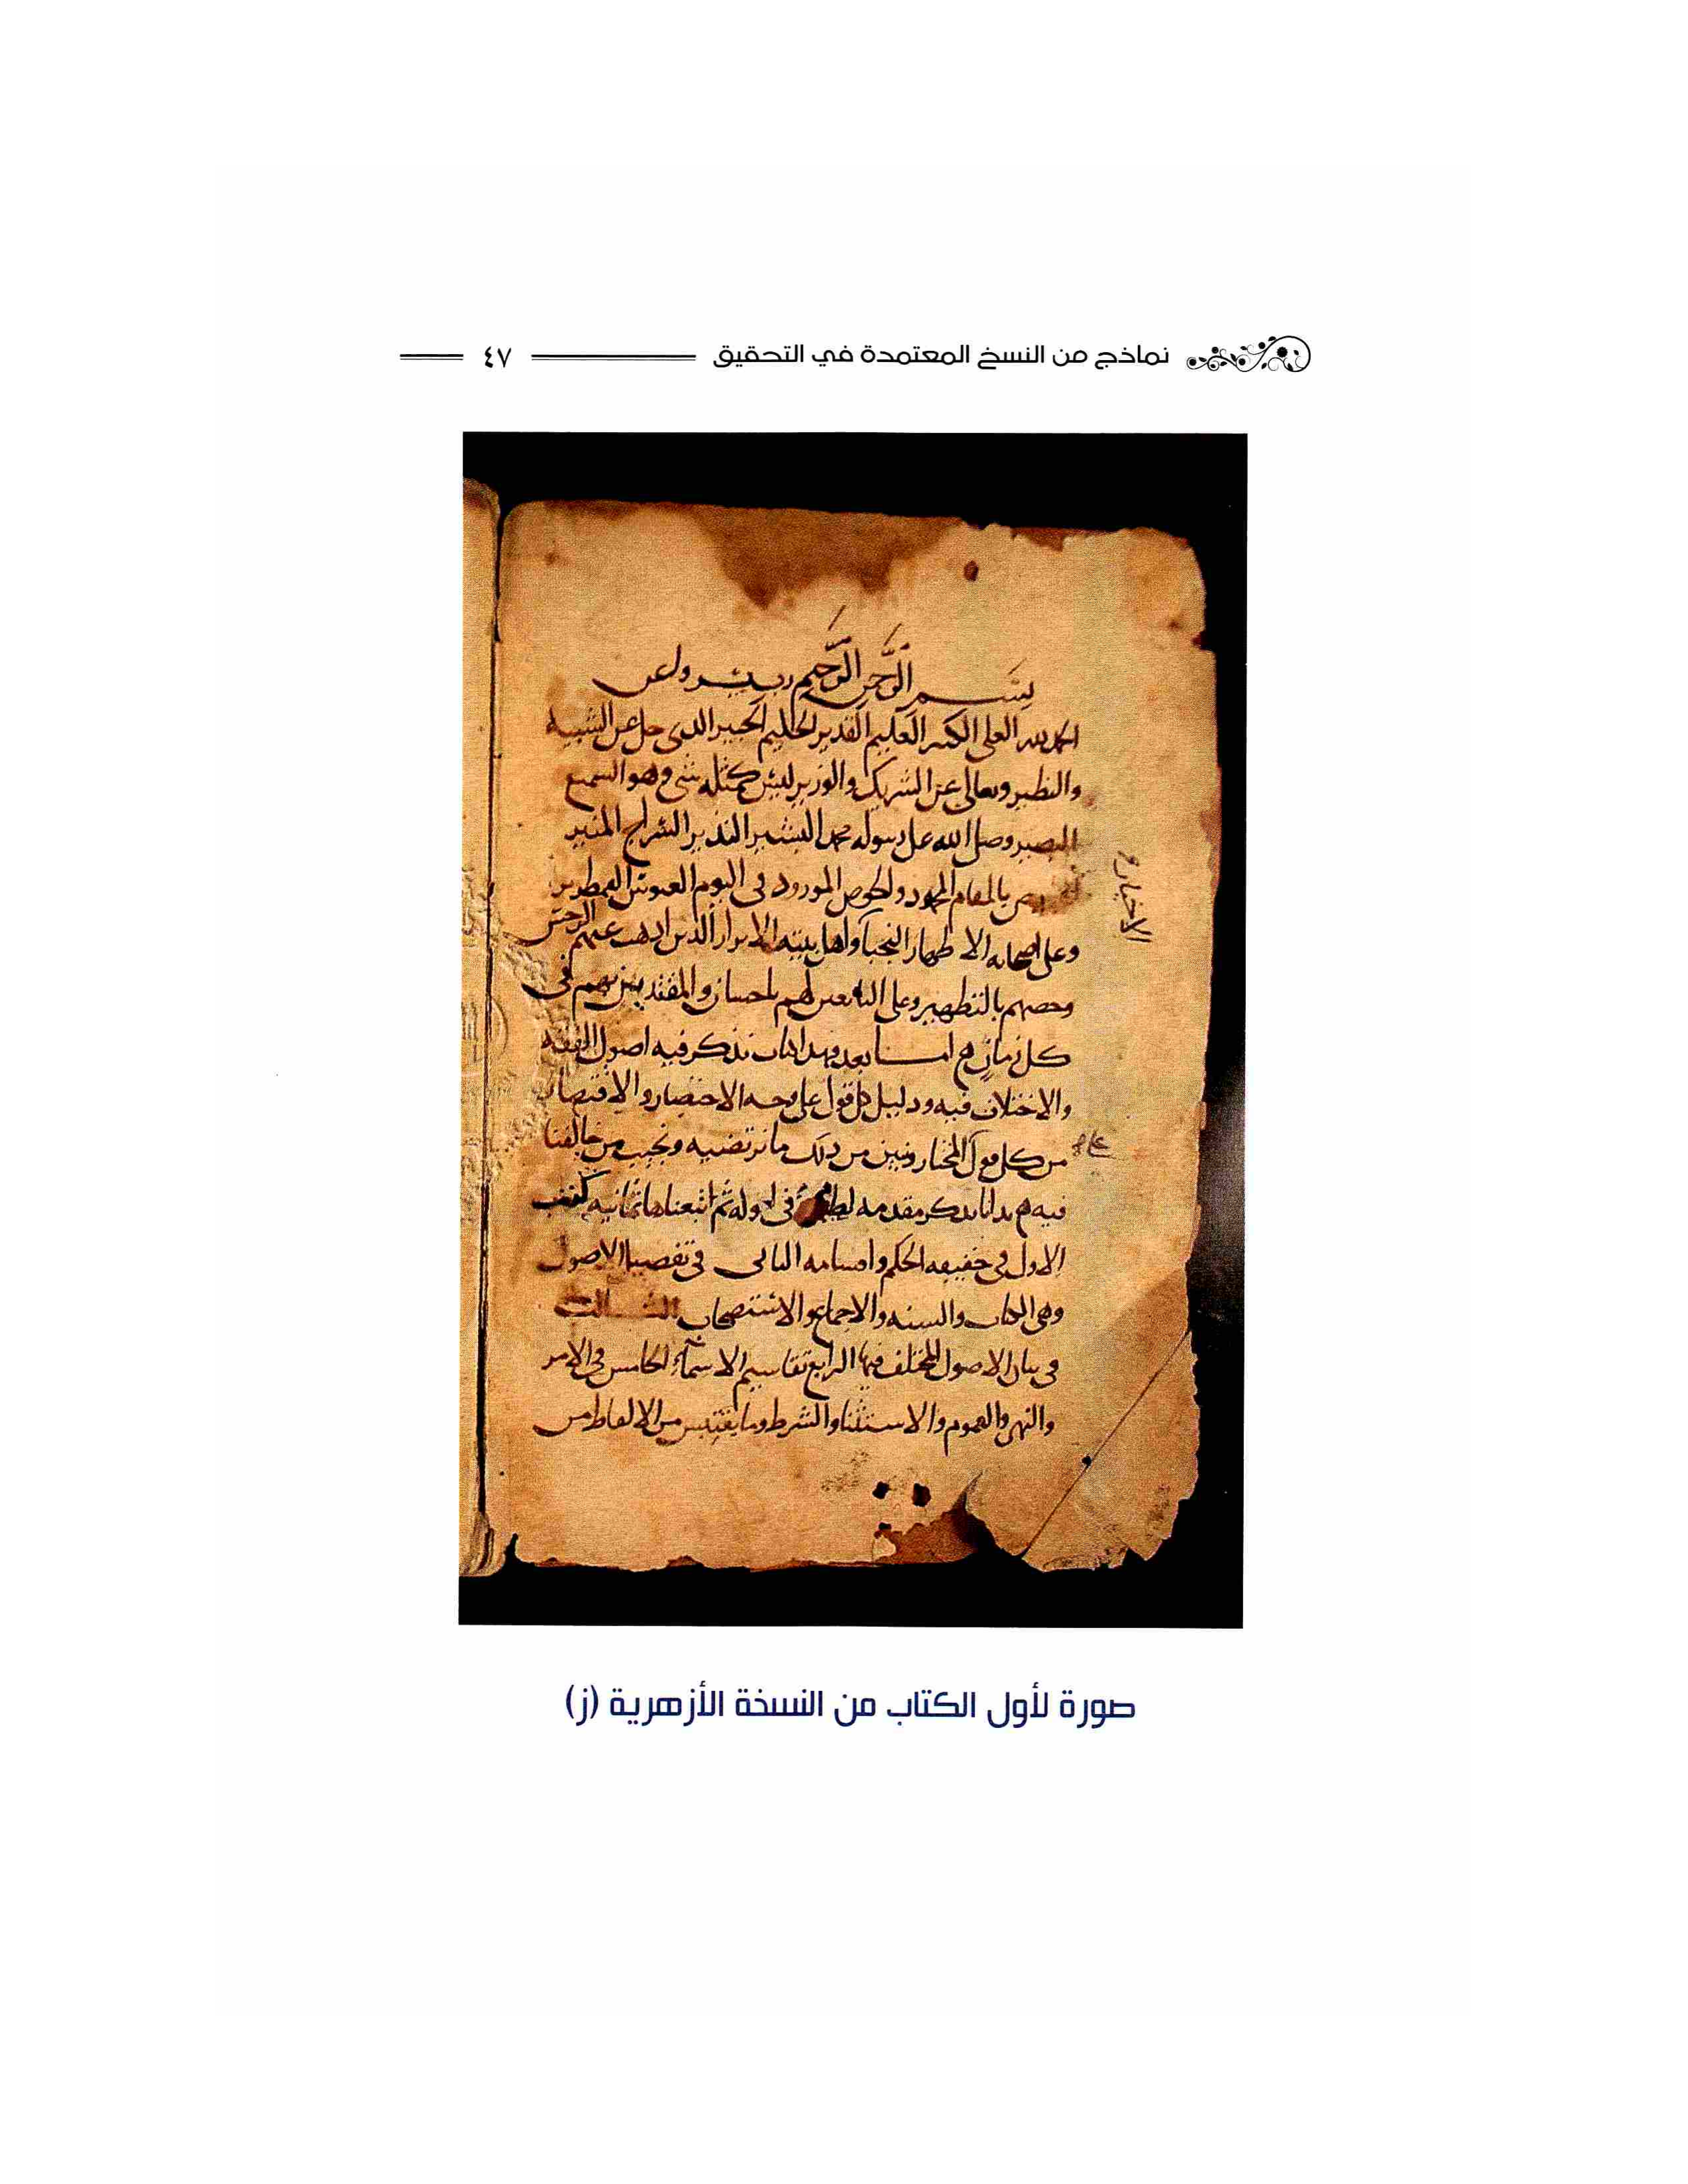 نماذج من النسخ المعتمدة في التحقيق ٤٧
بسم الرحمن الرحيم رب يسر واعن
الحمد لله العلي الكبير العليم القدير الحليم الخبير الذي جل عن الشبيه
والنظير وتعالى عن الشريك والوزير ليس كمثله شي وهو السميع
البصير وصلى الله على رسوله محمد البشير النذير السراج المنير
بالمقام المحمود والحوض المورود في اليوم العبوس القمطرير
وعلى اصحابه الاطهار النجبا واهل بيته الابرار الذين اذهب عنهم الرجس
وخصهم بالتطهير وعلى التابعين لهم باحسان والمقتدين بهم في
كل زمان اما بعد فهذا كتاب نذكر فيه اصول الفقه
والاختلاف فيه ودليل كل قول على وجه الاختصار والاقتصار
من كل قول المختار ونبين من ذلك ما نرتضيه ونجيب من خالفنا
فيه بدانا بذكر مقدمه لطيفة في اوله ثم اتبعناها ثمانيه
الاول في حقيقه الحكم واقسامه الثاني في تفصيل الاصول
وهي الكتاب والسنه والاجماع والاستصحاب الثالث
في بيان الاصول المختلف فيها الرابع تقاسيم الاسماء الخامس في الامر
والنهي والعموم والاستثنا والشرط وما يقتبس من الالفاظ من
صورة لأول الكتاب من النسخة الأزهرية (ز)